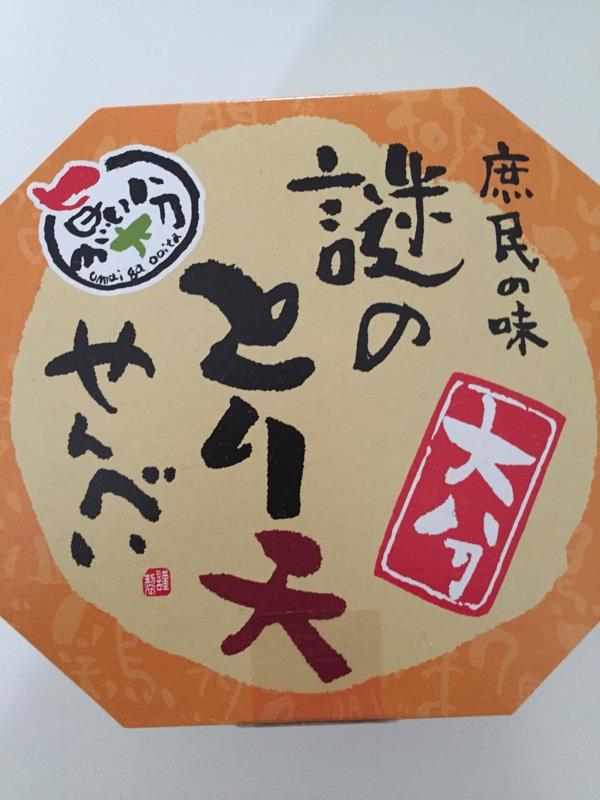 庶民の味
謎の
とり天
せんべい
大分
旨いが大分
umai ga ooita
謹製